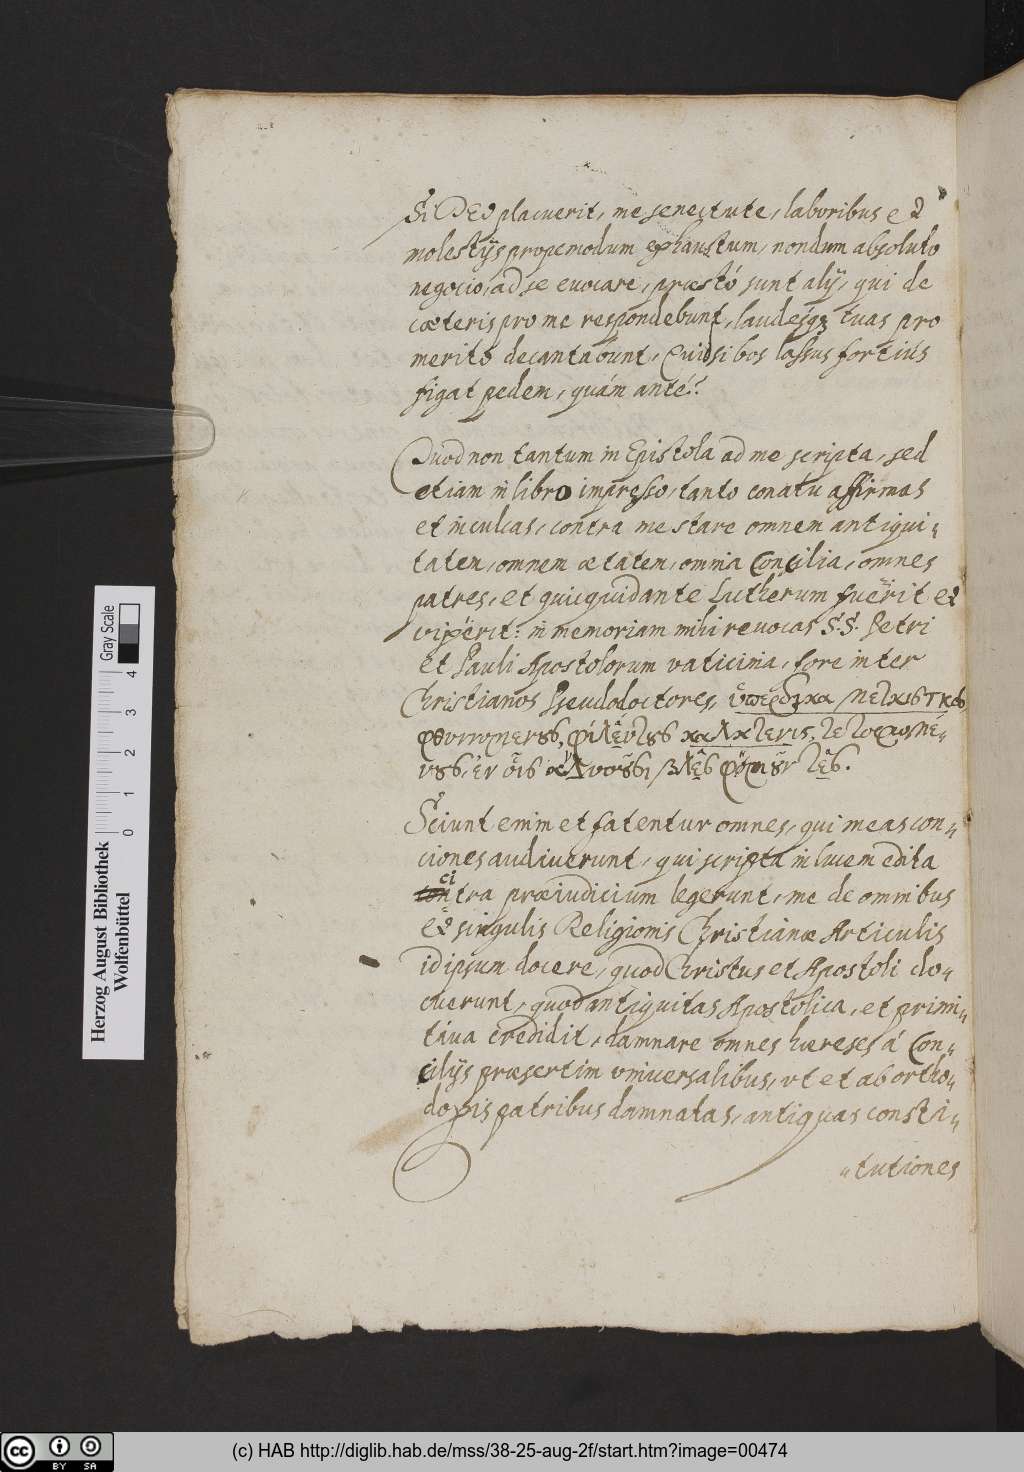 Si DEO placuerit, me senectute, laboribus et
molestijs propemodum exhaustum, nondum absoluto
negocio, ad se evocare, praestó sunt alij, qui de
caeteris pro me respondebunt, laudesq; tuas pro
merito decantabunt, Quid si bos lassus fortiús
figat pedem, quám anté?
Quod non tantum in Epistola ad me scripta, sed
etiam in libro impresso, tanto conatu affirmas
et inculcas, contra me stare omnem antiqui-
tatem, omnem aetatem, omnia Concilia, omnes
patres, et quicquid ante Lutherum fuerit et
vixerit: in memoriam mihi revocas S.S. Petri
et Pauli Apostolorum vaticinia, fore inter
Christianos Pseudodoctores, ὑπέρογκα
Sciunt enim et fatentur omnes, qui meas con-
ciones audiverunt, qui scripta in lucem edita
citra praeiudicium legerunt, me de omnibus
et singulis Religionis Christianae Articulis
id ipsum docere, quod Christus et Apostoli do-
cuerunt, quod antiquitas Apostolica, et primi-
tiva credidit, damnare omnes haereses á Con-
cilijs praesertim vniversalibus, vt et ab ortho-
doxis patribus damnatas, antiquas consti-
-tutiones
Herzog August Bibliothek
Wolfenbüttel
Gray Scale
0 1 2 3 4
cc BY SA
(c) HAB http://diglib.hab.de/mss/38-25-aug-2f/start.htm?image=00474